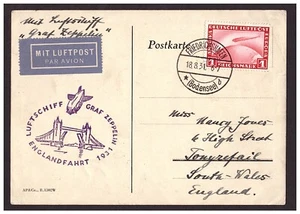 Mit Luftschiff
"Graf Zeppelin"
MIT LUFTPOST
PAR AVION
Postkarte
FRIEDRICHSHAFEN
18.8.31
(Bodensee) d
LUFTSCHIFF GRAF ZEPPELIN
ENGLANDFAHRT 1931
Miss
Nancy Jones
4 High Street
Tonyrefail
South-Wales
England.